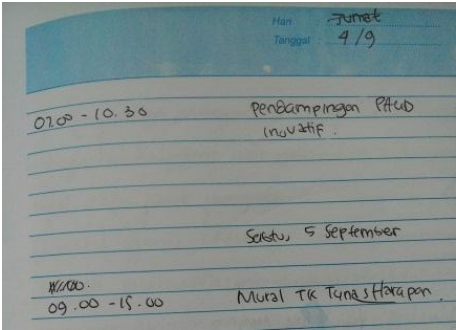 Hari : Jumat
Tanggal : 4/9
07.00 - 10.30 Pendampingan PAUD
inovatif.
Sabtu, 5 September
09.00 - 15.00 Mural TK Tunas Harapan